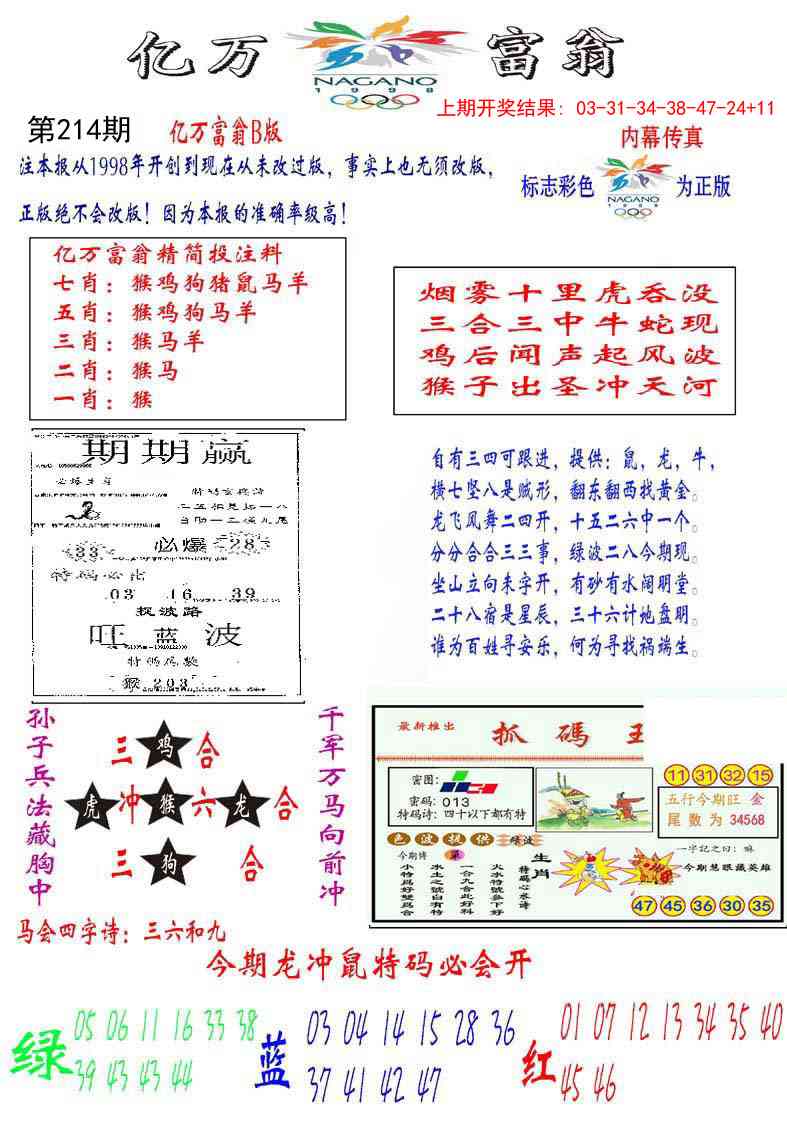 亿万 富翁
NAGANO
1998
上期开奖结果: 03-31-34-38-47-24+11
第214期 亿万富翁B版
内幕传真
注本报从1998年开创到现在从未改过版，事实上也无须改版，
标志彩色 NAGANO 1998 为正版
正版绝不会改版！因为本报的准确率级高！
亿万富翁精简投注料
七肖：猴鸡狗猪鼠马羊
五肖：猴鸡狗马羊
三肖：猴马羊
二肖：猴马
一肖：猴
烟雾十里虎吞没
三合三中牛蛇现
鸡后闻声起风波
猴子出圣冲天河
期期赢
必爆
33 28
特码必出
03 16 39
捉波路
旺 蓝 波
猴 203
自有三四可跟进，提供：鼠，龙，牛，
横七坚八是贼形，翻东翻西找黄金。
龙飞凤舞二四开，十五二六中一个。
分分合合三三事，绿波二八今期现。
坐山立向未字开，有砂有水阔明堂。
二十八宿是星辰，三十六计地盘明。
谁为百姓寻安乐，何为寻找祸端生。
孙子兵法藏胸中
三 鸡 合
虎 冲 猴 六 龙 合
三 狗 合
千军万马向前冲
最新推出 抓碼王
密图：
密码：013
特码诗：四十以下都有特
11 31 32 15
五行今期旺 金
尾数为 34568
色波提供 绿波
今期博
生肖
特码心水诗
火水特號参下好
一合九合此好科
水土之號白有特
小特爲好雙爲合
一字記之曰：
今期慧眼藏英雄
47 45 36 30 35
马会四字诗：三六和九
今期龙冲鼠特码必会开
绿 05 06 11 16 33 38
39 43 43 44
蓝 03 04 14 15 28 36
37 41 42 47
红 01 07 12 13 34 35 40
45 46